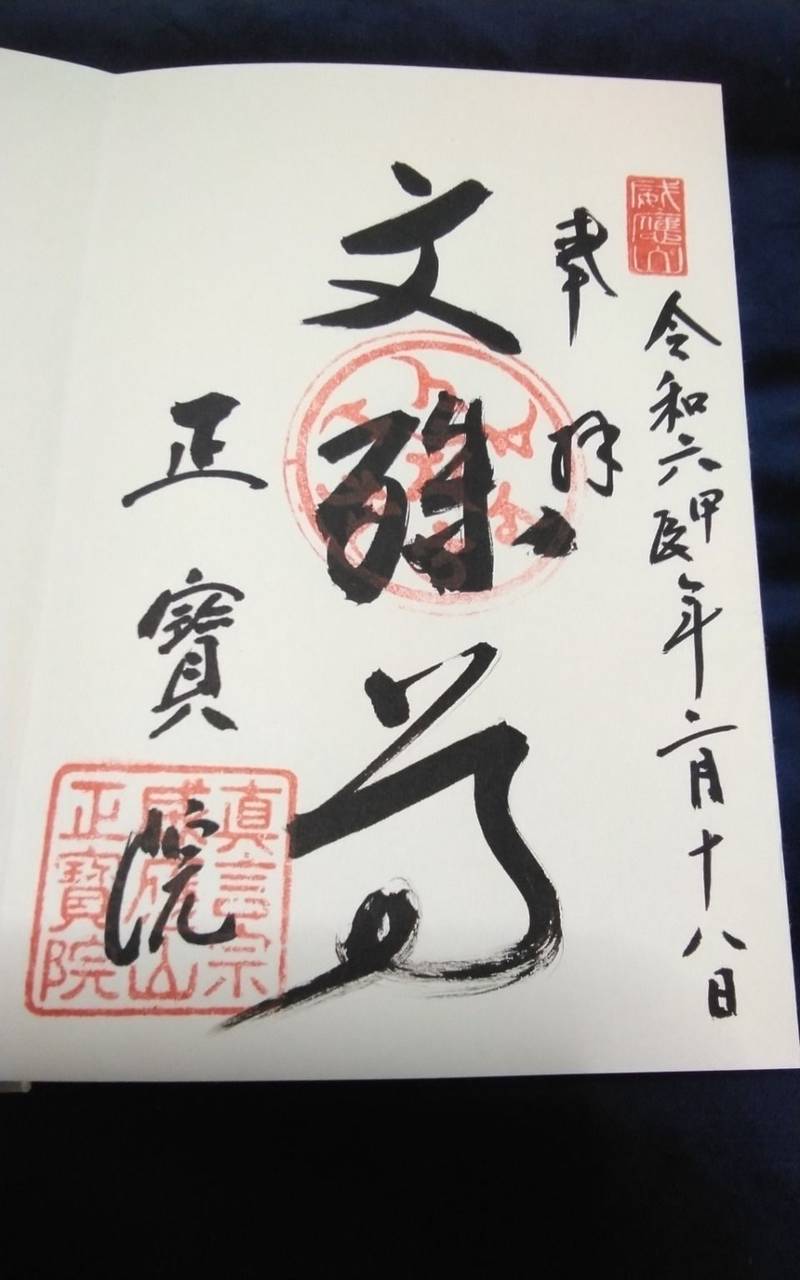 威應山
令和六甲辰年二月十八日
奉拝
文殊尊
正寶院
真言宗
威應山
正寶院